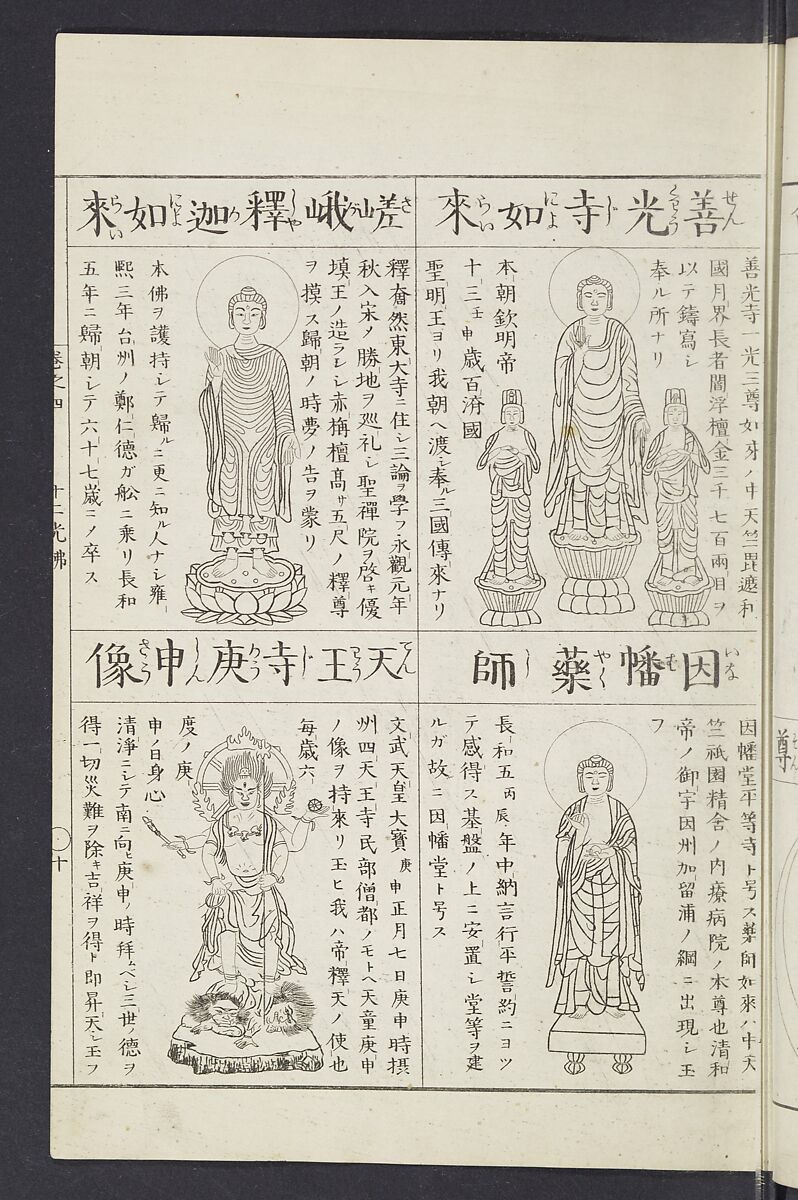 善光寺如來
せんくわうじによらい
善光寺一光三尊如來ノ中天竺毘遮利
國月界長者閻浮檀金三千七百兩目ヲ
以テ鑄寫シ
奉ル所ナリ
本朝欽明帝
十三壬申歳百濟國
聖明王ヨリ我朝ヘ渡シ奉ル三國傳來ナリ
嵯峨釋迦如來
さがしやかによらい
釋奝然東大寺ニ住シ三論ヲ學フ永觀元年
秋入宋ノ勝地ヲ巡礼シ聖禪院ヲ啓キ優
塡王ノ造ラレシ赤栴檀髙サ五尺ノ釋尊
ヲ摸ス歸朝ノ時夢ノ告ヲ蒙リ
本佛ヲ護持シテ歸ルニ更ニ知ル人ナシ雍
熙三年台州ノ鄭仁德ガ舩ニ乗リ長和
五年ニ歸朝シテ六十七歳ニノ卒ス
因幡藥師
いなむやくし
因幡堂平等寺ト号ス藥師如來ハ中天
竺祇園精舎ノ内療病院ノ本尊也清和
帝ノ御宇因州加留浦ノ綱ニ出現シ玉
フ
長和五丙辰年中納言行平誓約ニヨツ
テ感得ス基盤ノ上ニ安置シ堂等ヲ建
ルガ故ニ因幡堂ト号ス
天王寺庚申像
てんわうじかうしんざう
文武天皇大寳庚申正月七日庚申時摂
州四天王寺民部僧都ノモトヘ天童庚申
ノ像ヲ持來リ玉ヒ我ハ帝釋天ノ使也
毎歳六
度ノ庚
申ノ日身心
清淨ニシテ南ニ向ヒ庚申ノ時拜ムベシ三世ノ德ヲ
得一切災難ヲ除キ吉祥ヲ得ト即昇天シ玉フ
卷之四
十二光佛
十
尊